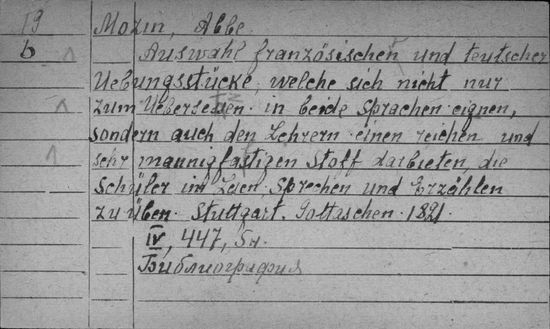 19 Mozin, Abbe.
b Auswahl französischen und teutscher
Uebungsstücke, welche sich nicht nur
zum Ueberseßen in beide Sprachen eignen,
sondern auch den Lehrern einen reichen und
sehr mannigfastigen Stoff darbieten, die
Schüler im Lesen, Sprechen und Erzählen
zu üben. Stuttgart. Gottaschen. 1821.
IV, 447, Sн.
Библиография